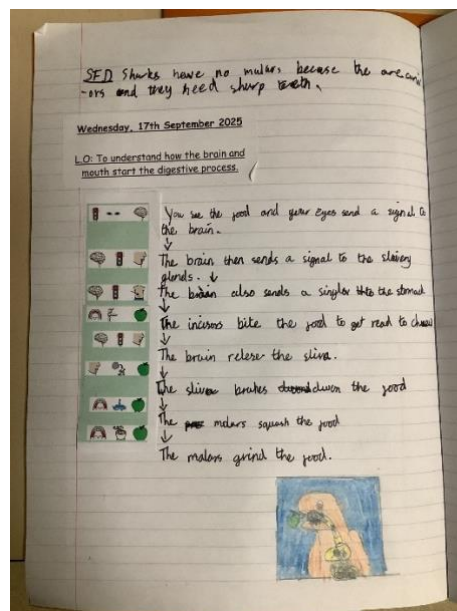 SED Sharks have no mulars becase the are carni
-ors and they need sharp teeth.
Wednesday, 17th September 2025
L.O: To understand how the brain and
mouth start the digestive process.
You see the food and your eyes send a signal to
the brain.
The brain then sends a signal to the slivery
glends.
The brain also sends a singler to the stomach
The incisors bite the food to get read to chew
The brain relese the slive.
The slive brakes down the food
The molars squash the food
The molars grind the food.